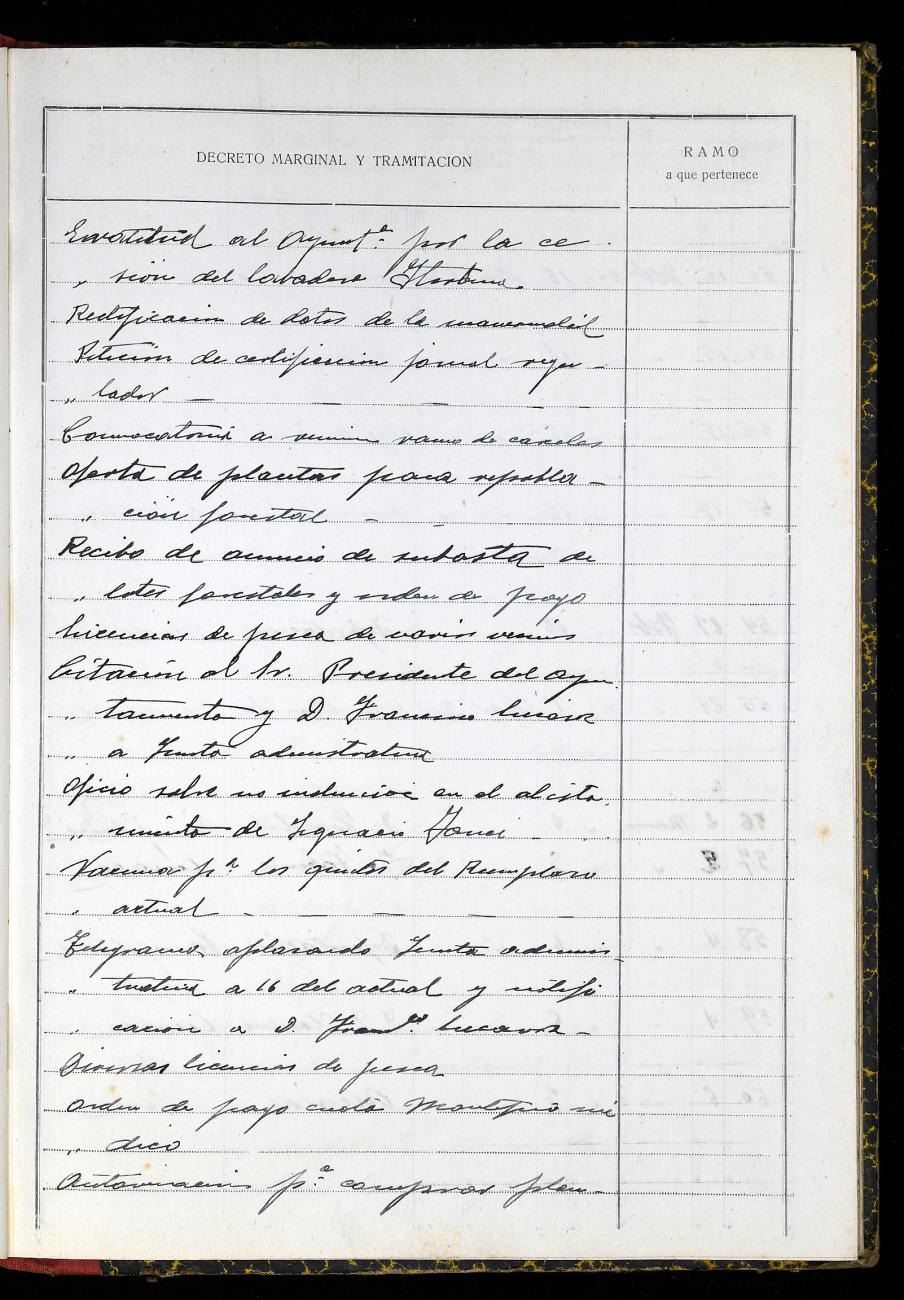 DECRETO MARGINAL Y TRAMITACION
RAMO
a que pertenece
Gratitud al Ayunt.º por la ce-
„ sión del lavadero
Rectificación de datos de la
Petición de certificación jornal regu-
„ lador — — — —
Convocatoria a reunión ramo de cárceles
Oferta de plantas para repobla-
„ ción forestal — —
Recibo de anuncio de subasta de
„ lotes forestales y orden de pago
Licencias de pesca de varios vecinos
Citación al Sr. Presidente del Ayun-
„ tamiento y D. Francisco
„ a Junta administrativa
Oficio sobre no inclusión en el alista-
„ miento de Ignacio —
Vacunas p.ª los quintos del Reemplazo
„ actual — — — — —
Telegrama aplazando Junta adminis-
„ trativa a 16 del actual y notifi
„ cación a D. Fran.co —
Diversas licencias de pesca
Orden de pago cuota Montepío mé
„ dico
Autorización p.ª comprar plan-